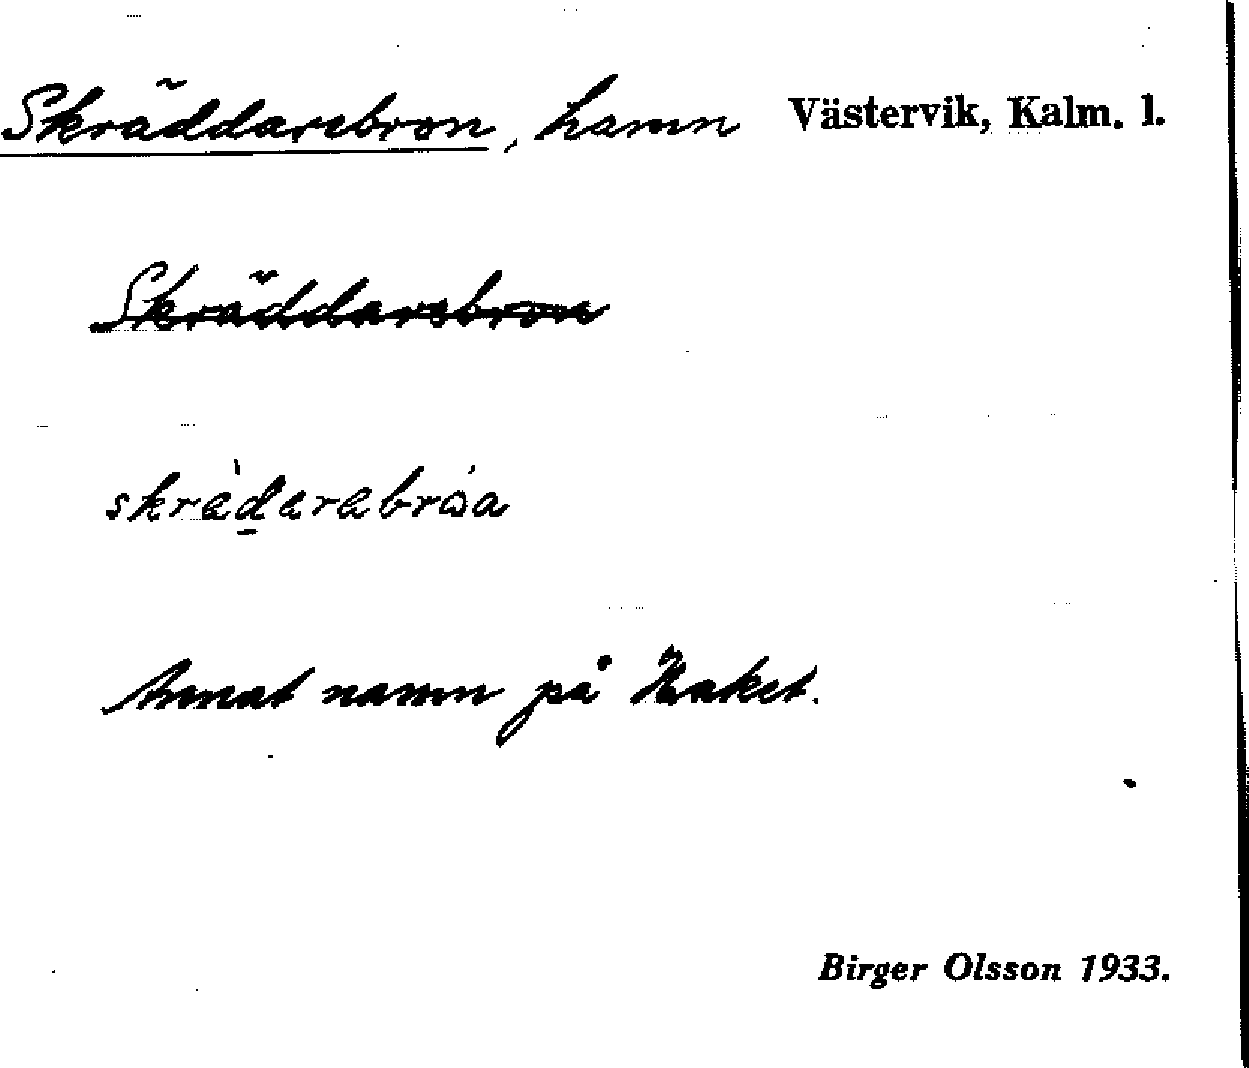 Skräddarebron, hamn Västervik, Kalm. l.
Skräddarebron
Annat namn på Haket.
Birger Olsson 1933.